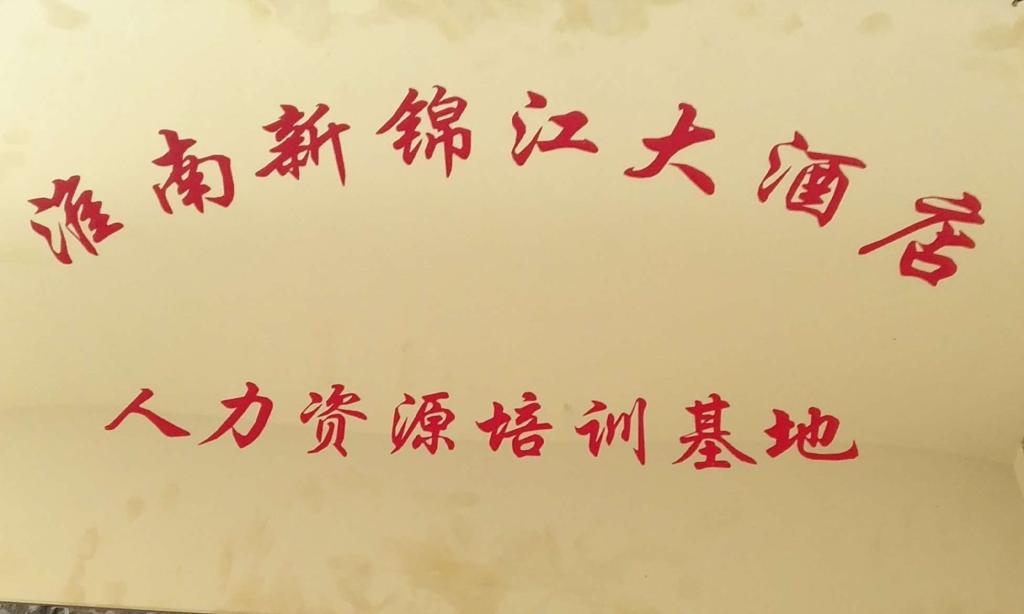 淮南新锦江大酒店
人力资源培训基地